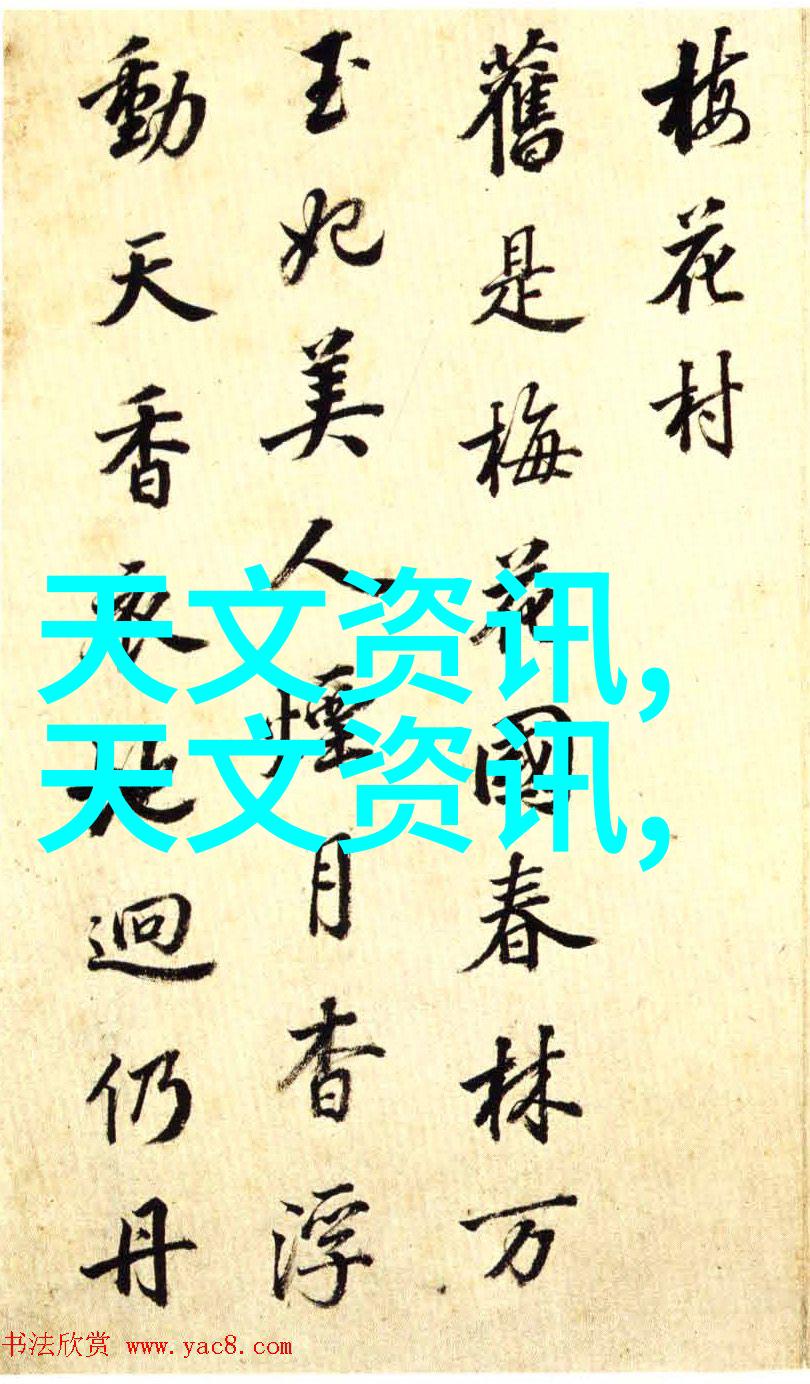 梅花村
舊是梅花國春林万
玉妃美人煙月杳浮
動天香迴仍丹
天文资讯,
天文资讯,
书法欣赏 www.yac8.com